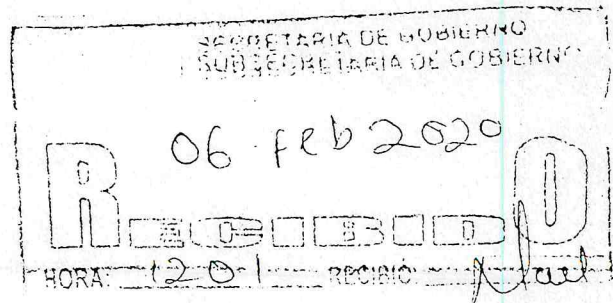 SECRETARIA DE GOBIERNO
SUBSECRETARIA DE GOBIERNO
06 feb 2020
RECIBIDO
HORA: 1201 RECIBIÓ: